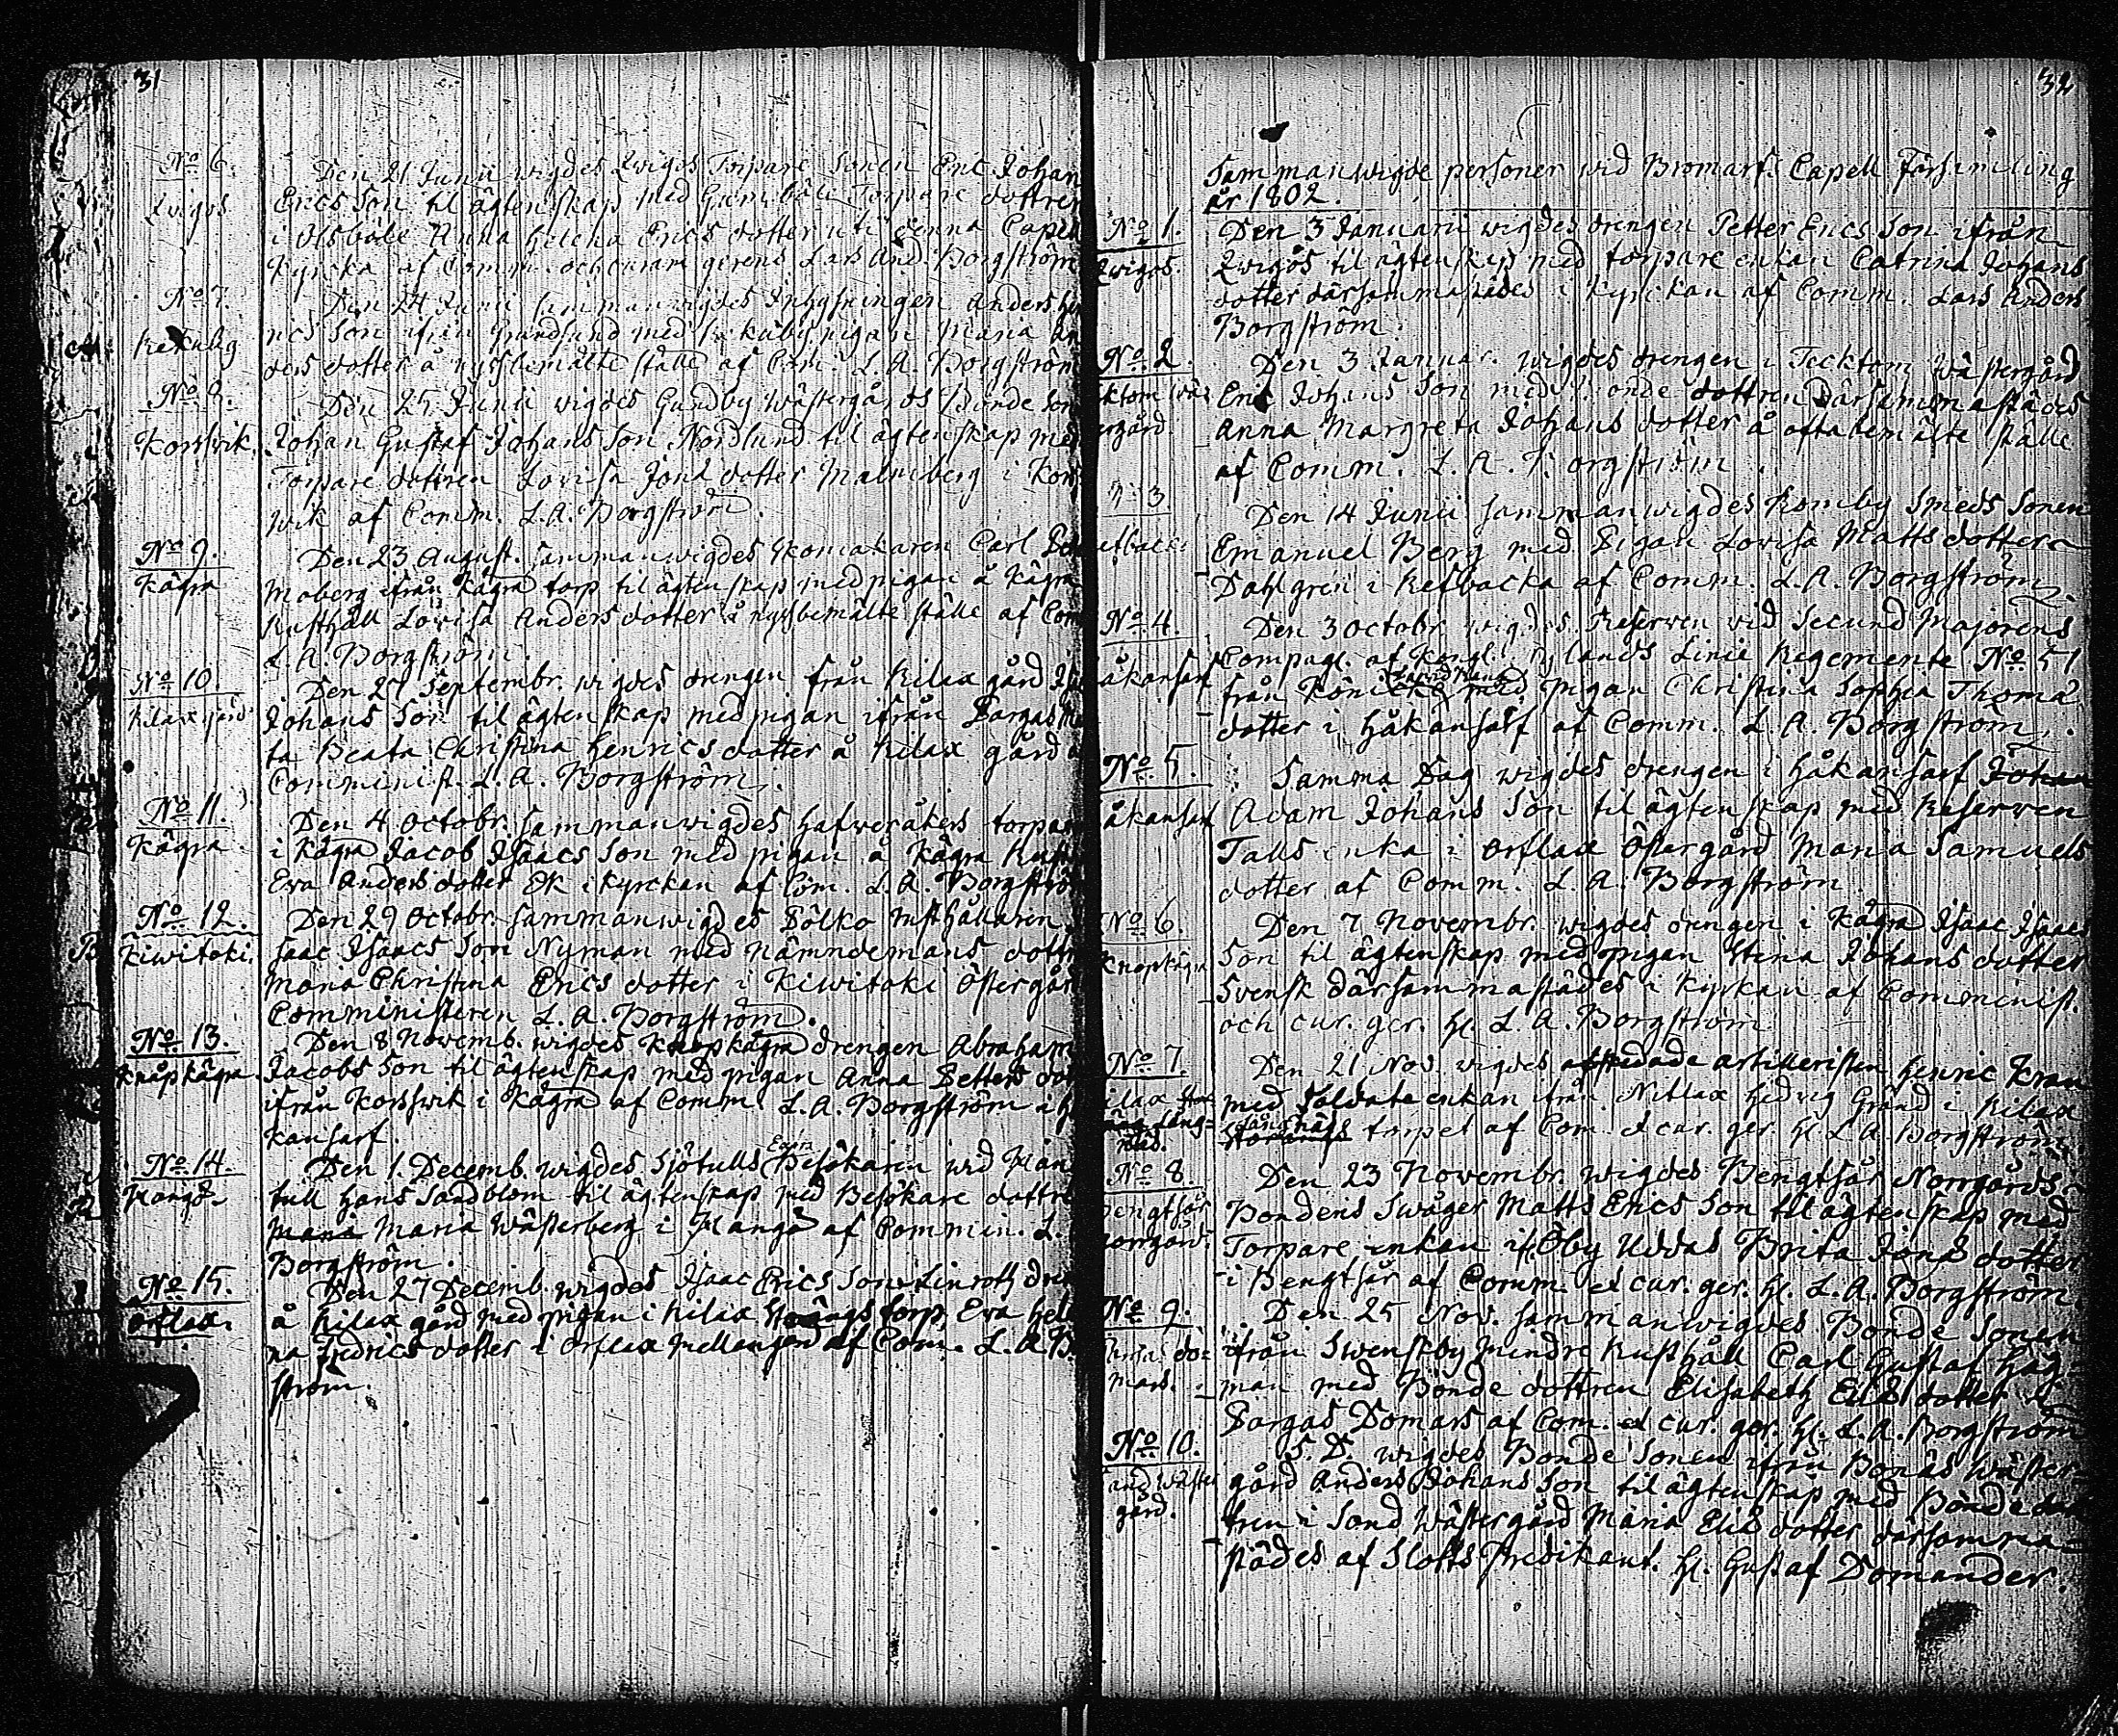 31
No 6.
Qvigos
Den 21 Junii wigdes Qvigos Torpare Sonen Eric Johan
Erics Son til ägtenskap med Gumböle Torpare dottren
i Olsböle Anna Helena Erics dotter uti denna Capell
Kyrcka af Comm. och curam gerens Lars And. Borgström
No 7.
Rekuby
Den 24 Junii sammanwigdes Inhysningen Anders Hen
rics Son ifrån med pigan Maria An
ders dotter å nyssbemälte ställe af Com. L. A. Borgström
No 8.
Korsvik.
Den 25 Junii wigdes Gundby Wästergårds Bonde Son
Johan Gustaf Johans Son Nordlund til ägtenskap med
Torpare dottren Lovisa Jona dotter Malmberg i Kors
wik af Comm. L. A. Borgström.
No 9.
Kägra
Den 23 August. sammanwigdes Skomakaren Carl
Moberg ifrån Kägra torp til ägtenskap med pigan å Kägra
Rusthåll Lovisa Anders dotter å nyssbemälte ställe af Com
L. A. Borgström.
No 10
Kilax gård
Den 27 Septembr. wigdes drengen från Kilax gård
Johans Son til ägtenskap med pigan ifrån Bargas
ta Beata Christina Henrics dotter å Kilax gård
Comminist. L. A. Borgström.
No 11.
Kägra.
Den 4 Octobr. sammanwigdes Hafweråkers torpar
i Kägra Jacob Isaacs Son med pigan å Kägra Rust
Eva Anders dotter Ek i Kyrckan af Com. L. A. Borgström
No 12.
Kiwitoki.
Den 29 Octobr. sammanwigdes Sölko Rusthållaren
saac Isaacs Son Nyman med Nämndemans dottr
Maria Christina Erics dotter i Kiwitoki Östergård
Comministeren L. A. Borgström.
No 13.
Knapkägra.
Den 8 Novemb. wigdes Knapkägra drengen Abraham
Jacobs Son til ägtenskap med pigan Anna Petters dot
ifrån Korsswik i Kägra af Comm. L. A. Borgström i Hå
kansarf.
No 14.
Hangö.
Den 1. Decemb. wigdes Sjötulls Besökaren wid Han
tull Hans Sandblom til ägtenskap med Besökare dottre
Maria Maria Wästerberg i Hangö af Commin. L.
Borgström.
No 15.
Orflax.
Den 27 Decemb. wigdes Isaac Erics Son Linroth dren
å Kilax gård med pigan i Kilax torp, Eva Hele
na Fredrics dotter i Orflax Mellangård af Com. L. A. B.
ström.
32
Sammanwigde personer wid Bromarf Capell Församling
år 1802.
No 1.
Qwigos.
Den 3 Januarii wigdes drengen Petter Erics Son ifrån
Qwigos til ägtenskap med torpare enkan Catrina Johans
dotter därsammastädes i Kyrckan af Comm. Lars Anders
Borgström.
No 2.
ktom Wäs
ergård
Den 3 Januar. wigdes drengen i Tecktom Wästergård
Eric Johans Son med Bonde dottren därsammastädes
Anna Margreta Johans dotter å oftabemälte ställe
af Comm. L. A. Borgström.
No 3.
efbacka
Den 14 Junii sammanwigdes Romby Smeds Sonen
Emanuel Berg med Pigan Lovisa Matts dotter
Dahlgren i Refbacka af Comm. L. A. Borgström
No 4.
åkansarf
Den 3 Octobr. wigdes Reserven wid Secund Majorens
Compagl. af Kongl. Nylands Linie Regemente No 51
från Könicke med pigan Christina Sophia Thoma
dotter i Håkansarf af Comm. L. A. Borgström.
No 5.
åkansarf
Samma Dag wigdes drengen i Håkansarf Johan
Adam Johans Son til ägtenskap med Reserven
Talls enka i Orflax Östergård Maria Samuels
dotter af Comm. L. A. Borgström
No 6.
Knapkägra
Den 7 Novembr. wigdes drengen i Kägra Isaac Isaacs
Son til ägtenskap med pigan Stina Johans dotter
Svensk därsammastädes i Kyrkan af Comminist.
och cur. ger. H. L. A. Borgström
No 7.
ilax
Läng-
näs.
Den 21 Nov. wigdes afskedade artilleristen Henric Kran
med Soldate enkan ifrån Nitlax Hedvig Grönd i Kilax
Långnäs torpet af Com. et cur. ger. H. L. A. Borgström
No 8.
Bengtsår
Norrgård.
Den 23 Novembr. wigdes Bengtsår Norrgårds
Bondens Swåger Matts Erics Son til ägtenskap med
Torpare enkan if. Öby Uddas Brita Jonas dotter
i Bengtsår af Comm. et cur. ger. H. L. A. Borgström.
No 9.
do-
mars.
Den 25 Nov. sammanwigdes Bonde Sonen
ifrån Swenskby Mindre Rusthåll Carl Gustaf Hag-
man med Bonde dottren Elisabeth Elis dotter i
Bargas Domars af Com. et cur. ger. H. L. A. Borgström
No 10.
and Wäster
gård.
S. D. wigdes Bonde Sonen ifrån Bonäs Wäster-
gård Anders Johans Son til ägtenskap med Bonde dot
tren i Sand Wästergård Maria Elis dotter därsamma-
städes af Slotts Predikant. H. Gustaf Domander.